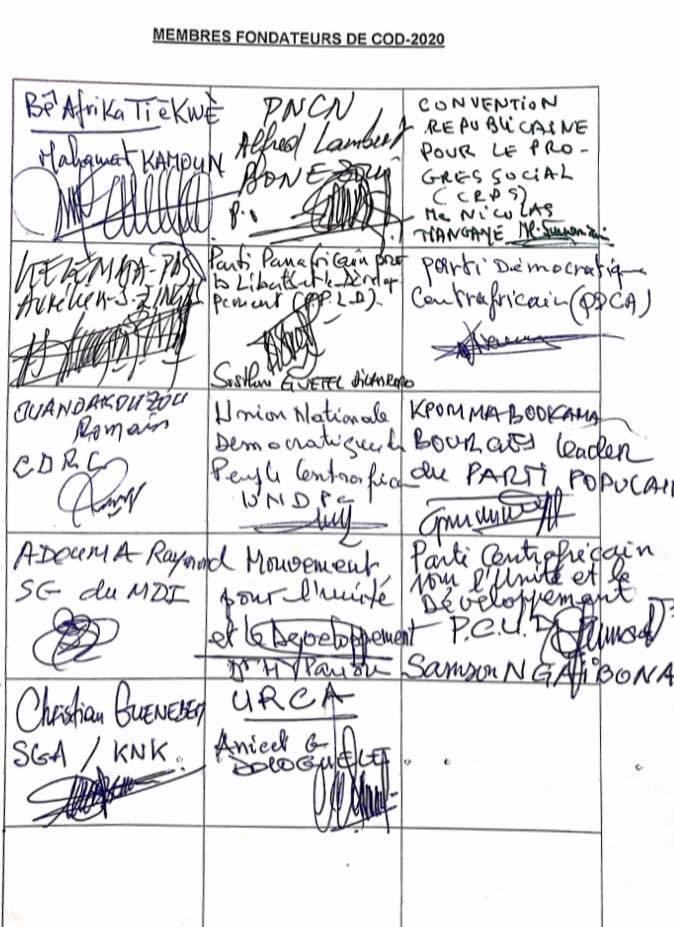 MEMBRES FONDATEURS DE COD-2020
Bê Afrika Ti ē Kwè
Mahamat KAMOUN
PNCN
Alfred Lambert
P.
CONVENTION
REPUBLICAINE
POUR LE PRO-
GRES SOCIAL
(CRPS)
Me NICOLAS
TIANGAYE
KELEMBA-PAS
Aurelien-S-ZINGAS
Parti Panafricain pour
la Liberté et le Dévelop
pement (P.P.L.D).
Sosthène GUETEL
Parti Démocratique
Centrafricain (PDCA)
OUANDAKOUZOU
Romain
CDRC
Union Nationale
Démocratique du
Peuple Centrafricain
UNDPC
KPOMMABODKAMA
BOURGES leader
du PARTI POPULAI
ADOUMA Raymond
SG du MDI
Mouvement
pour l'unité
et le Développement
Parti Centrafricain
pour l'Unité et le
Développement
P.C.U.D
Samson NGAIBONA
Christian GUENEBEM
SGA / KNK.
URCA
Anicet G
DOLOGUELE